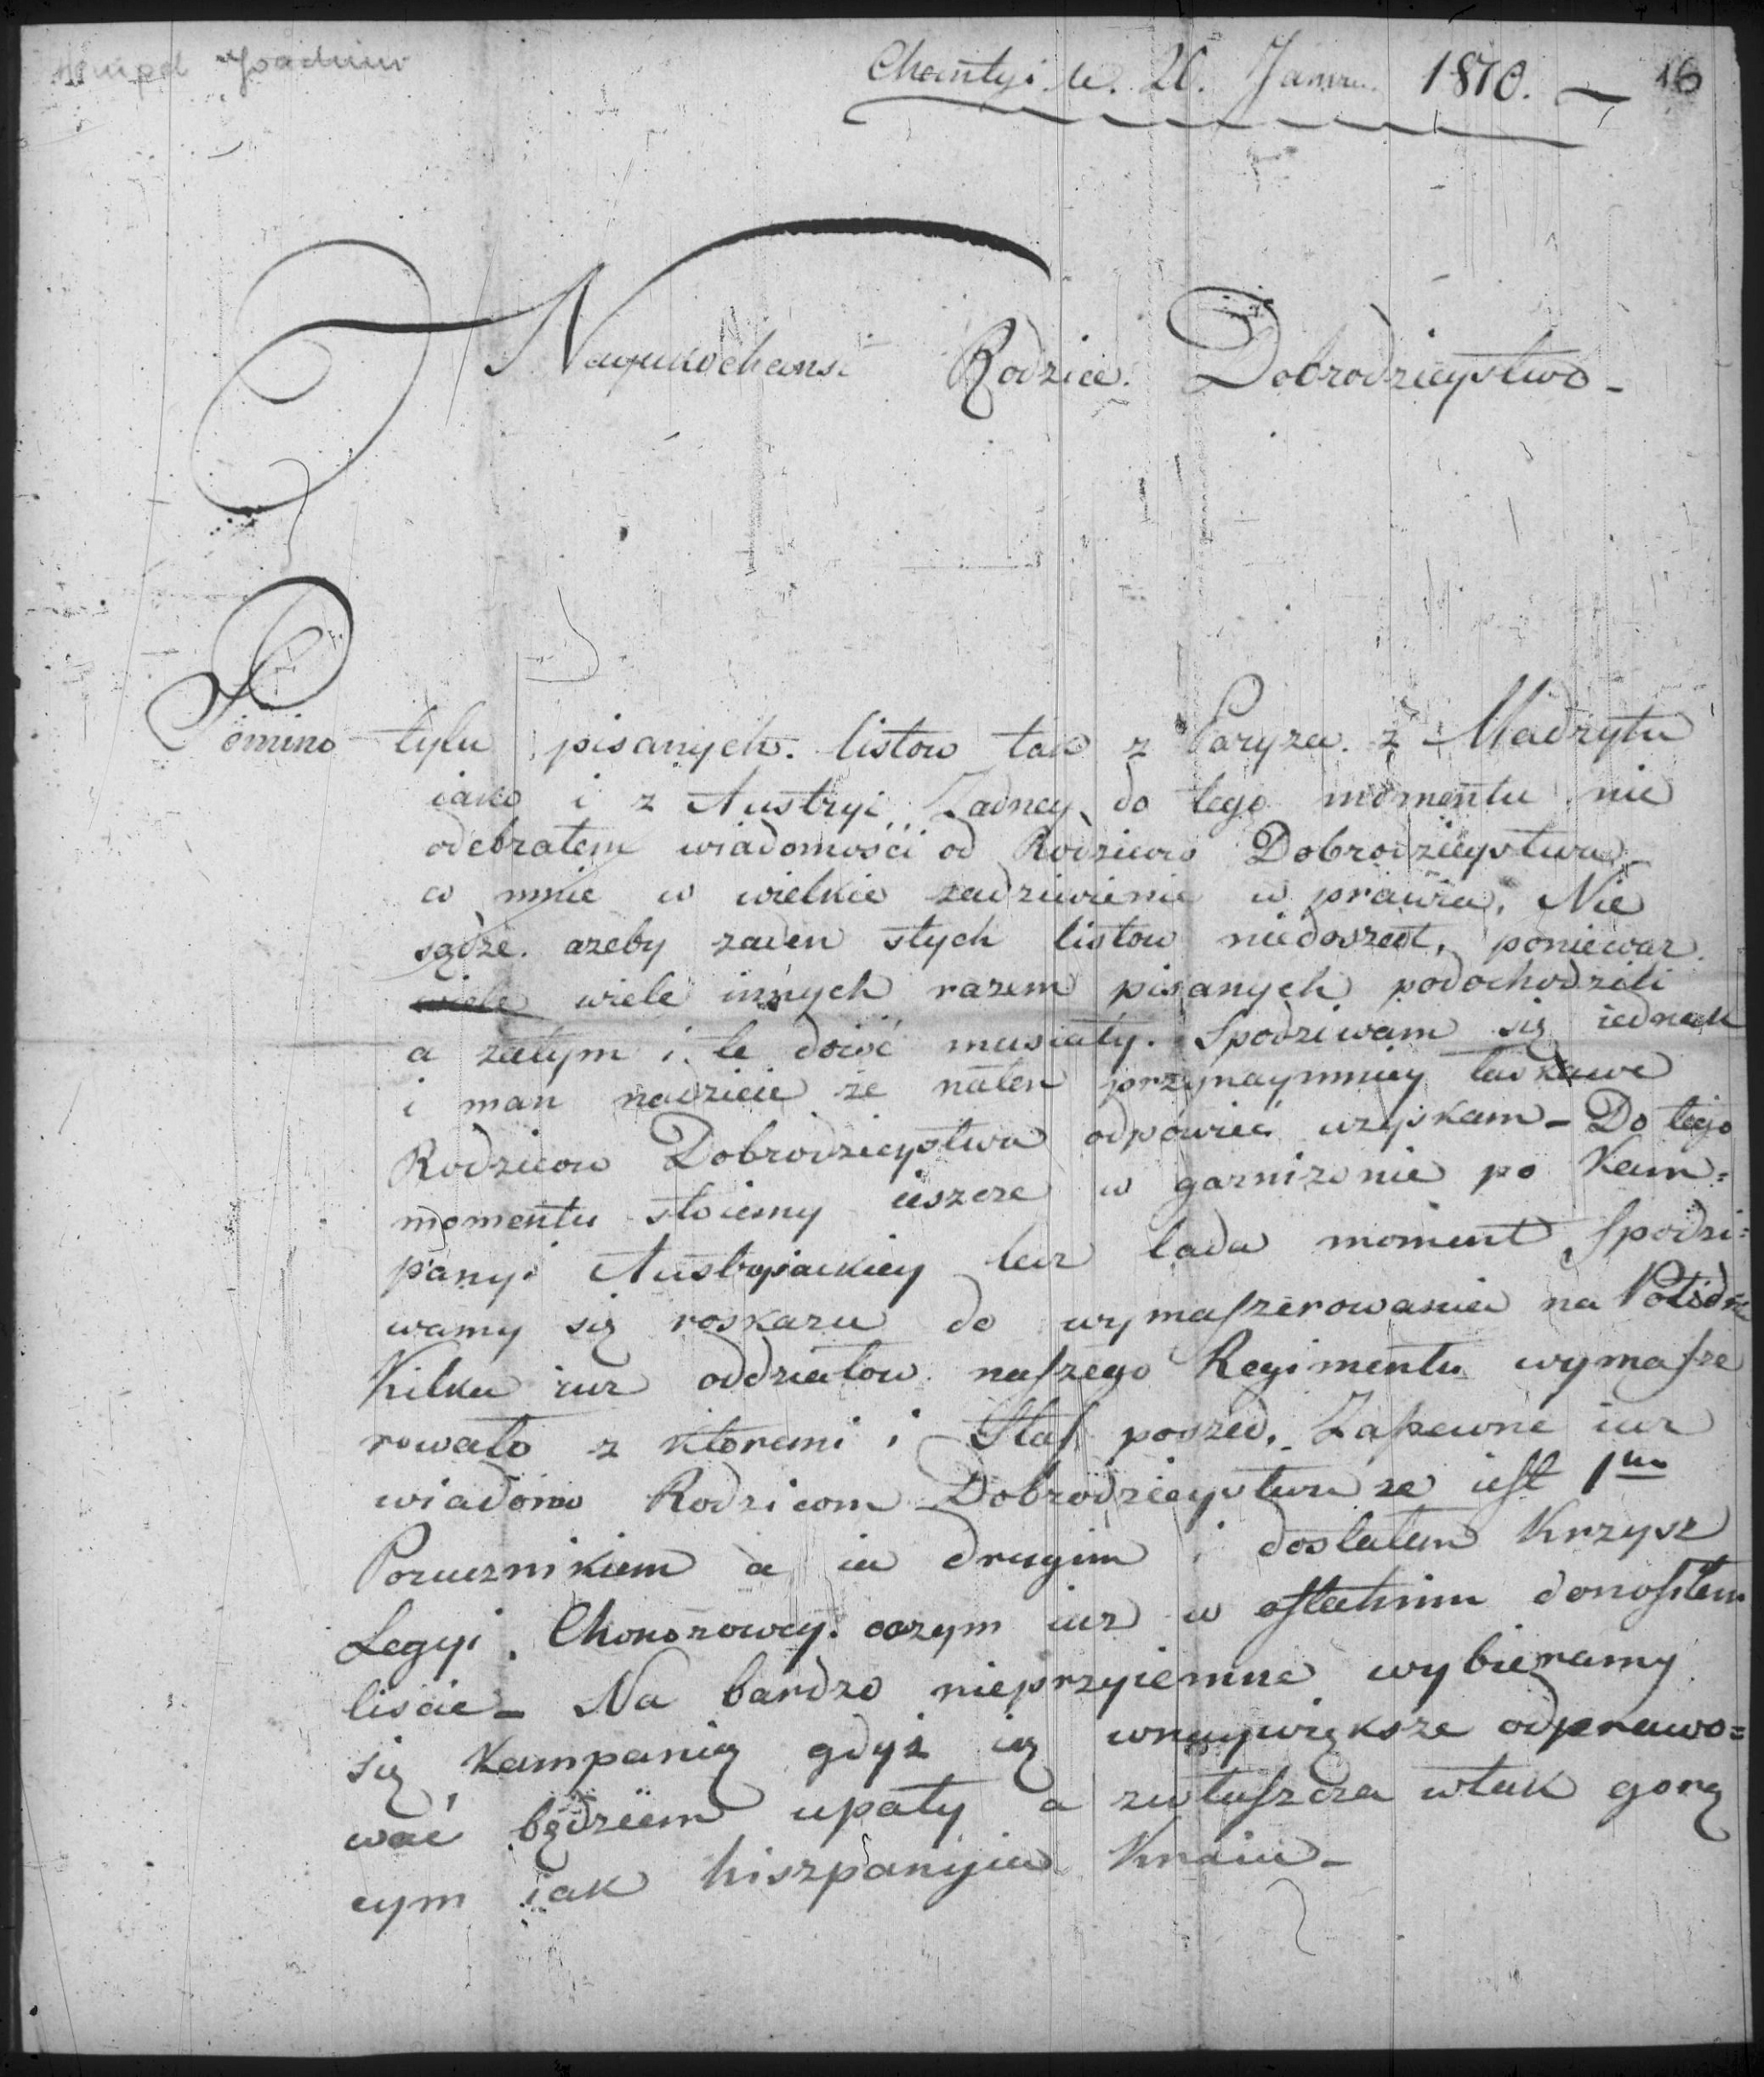 Hempel Joachim
Chantyi le. 20. Janvr. 1810. 16
Nayukochansi Rodzice Dobrodzieystwo
Pomimo tylu pisanych listow tak z Paryza z Madrytu
iako i z Austryi Zadney do tego momentu nie
odebrałem wiadomości od Rodzicow Dobrodzieystwa
co mnie w wielkie zadziwienie w prawia. Nie
sądze azeby zaden stych listow niedoszedł, poniewaz
wiele wiele innych razem pisanych podochodziłi
a zatym i te dojść musiały. Spodziwam się iednak
i mam nadzieie że naten przynaymniey łaskawe
Rodzicow Dobrodzieystwa odpowieć uzyskam - Do tego
momentu stoiemy ieszcze w garnizonie po Kam=
panyi Austryiackiey lecz lada moment spodzi=
wamy się roskazu do wymaszerowania na
Kilka iuz oddziałow naszego Regimentu wymasze
rowało z ktoremi i Staś poszed. Zapewne iuz
wiadomo Rodzicom Dobrodzieystwu ze iest 1m
Porucznikiem a ia drugim i dostałem Krzysz
Legyi Chonorowey. oczym iuz w ostatnim donosiłem
liscie - Na bardzo nieprzyiemne wybieramy
się Kampanią gdyż ią wnaywiększe odprawo=
wać będziem upały a zwłaszcza wtak gorą
cym iak hiszpanyia Kraiu -